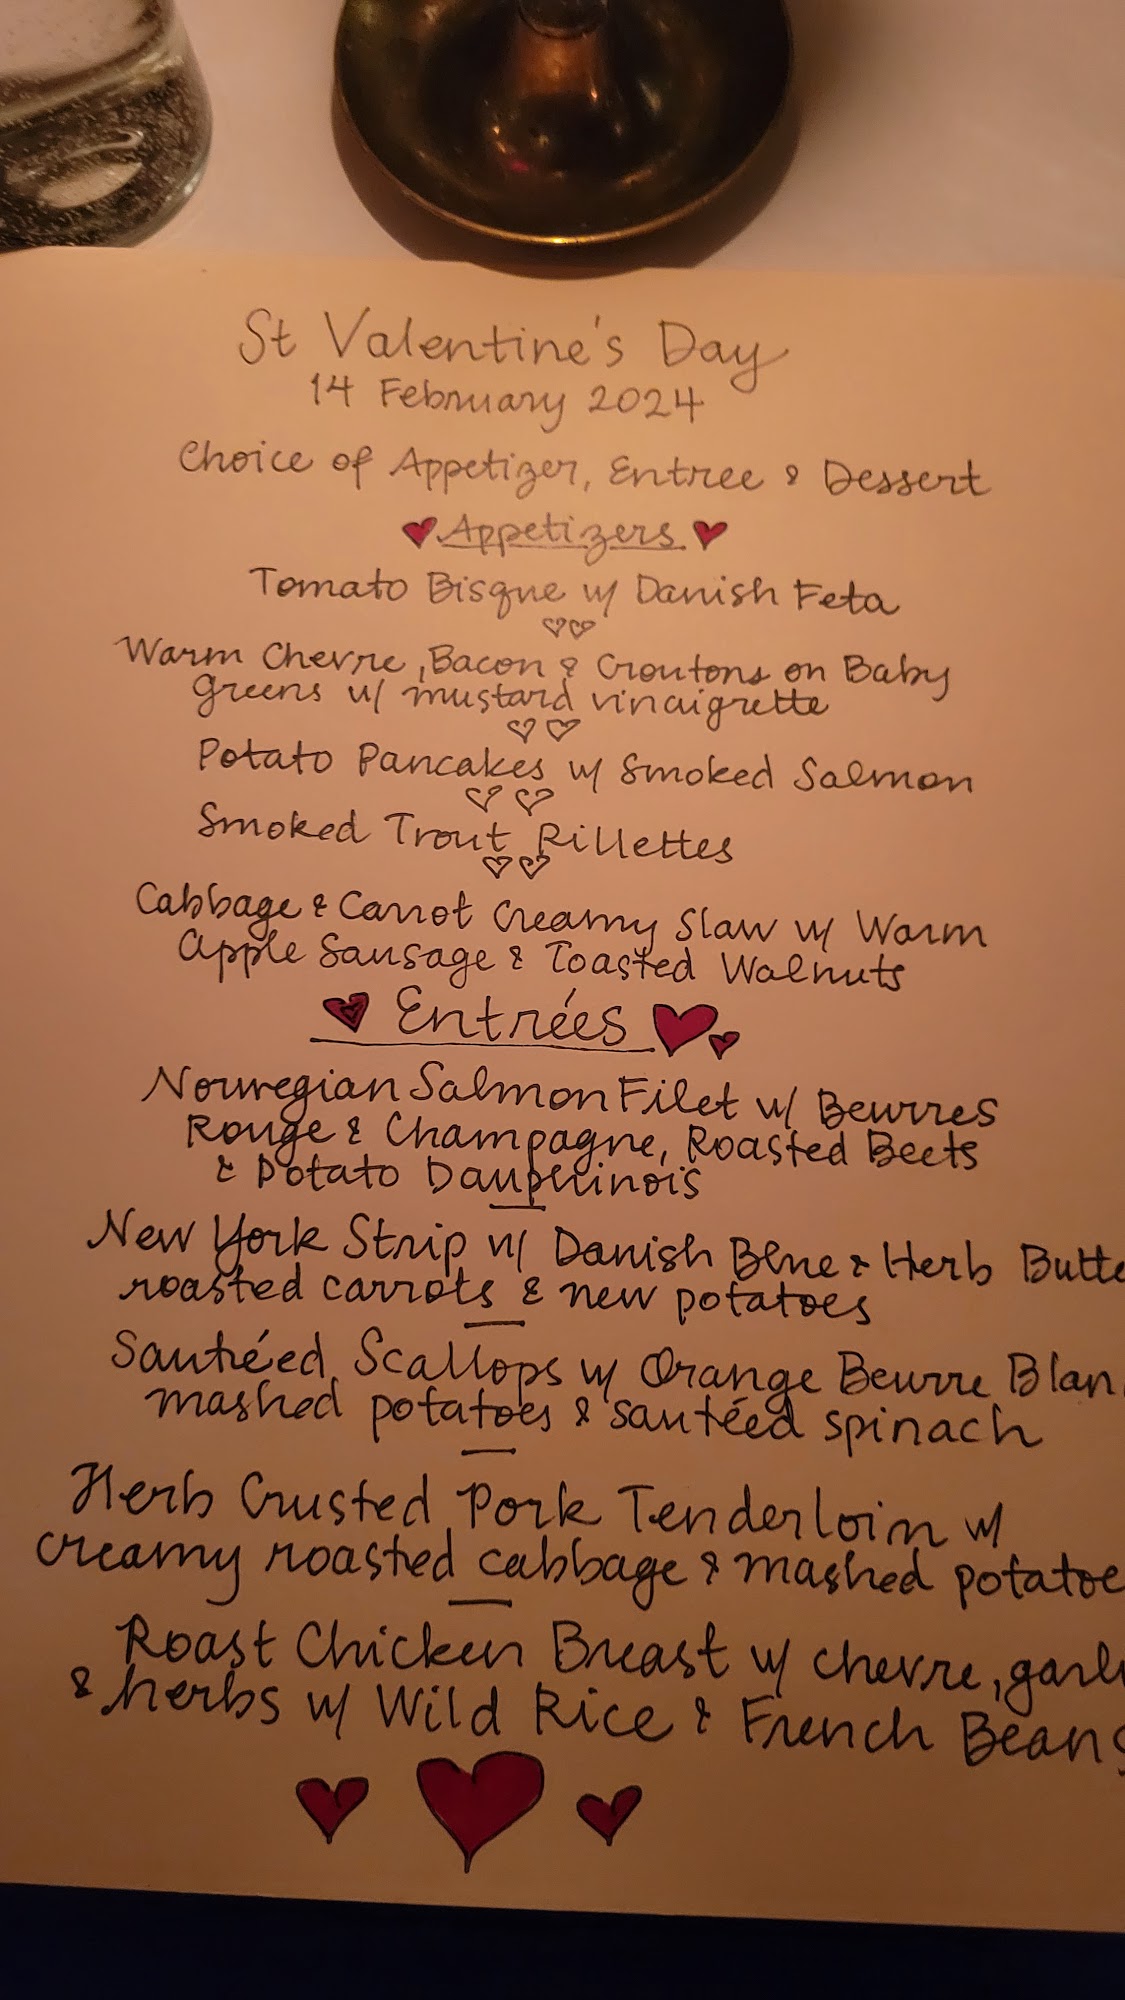 St Valentine's Day
14 February 2024
Choice of Appetizer, Entree & Dessert
Appetizers
Tomato Bisque w/ Danish Feta
Warm Chevre, Bacon & Croutons on Baby
greens w/ mustard vinaigrette
Potato Pancakes w/ Smoked Salmon
Smoked Trout Rillettes
Cabbage & Carrot Creamy Slaw w/ Warm
Apple Sausage & Toasted Walnuts
Entrées
Norwegian Salmon Filet w/ Beurres
Rouge & Champagne, Roasted Beets
& Potato Dauphinois
New York Strip w/ Danish Blue & Herb Butte
roasted carrots & new potatoes
Sautéed Scallops w/ Orange Beurre Blan
mashed potatoes & sautéed spinach
Herb Crusted Pork Tenderloin w/
creamy roasted cabbage & mashed potatoe
Roast Chicken Breast w/ chevre, garli
& herbs w/ Wild Rice & French Beans